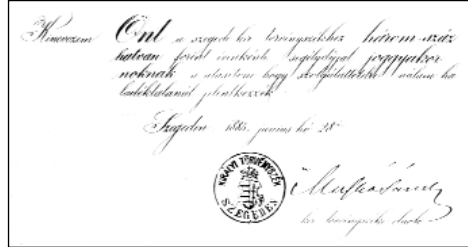 Kinevezem Önt a szegedi kir. törvényszékhez három-száz
hatvan forint évenkénti segélydíjjal joggyakor
noknak s utasítom hogy szolgálattételre nálam ha
ladéktalanul jelentkezzék
Szegeden 188 junius hó 28
KIRÁLYI TÖRVÉNYSZÉK SZEGEDEN
kir. törvényszéki elnök